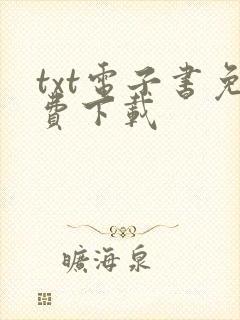 txt電子書免
費下載
曠海泉